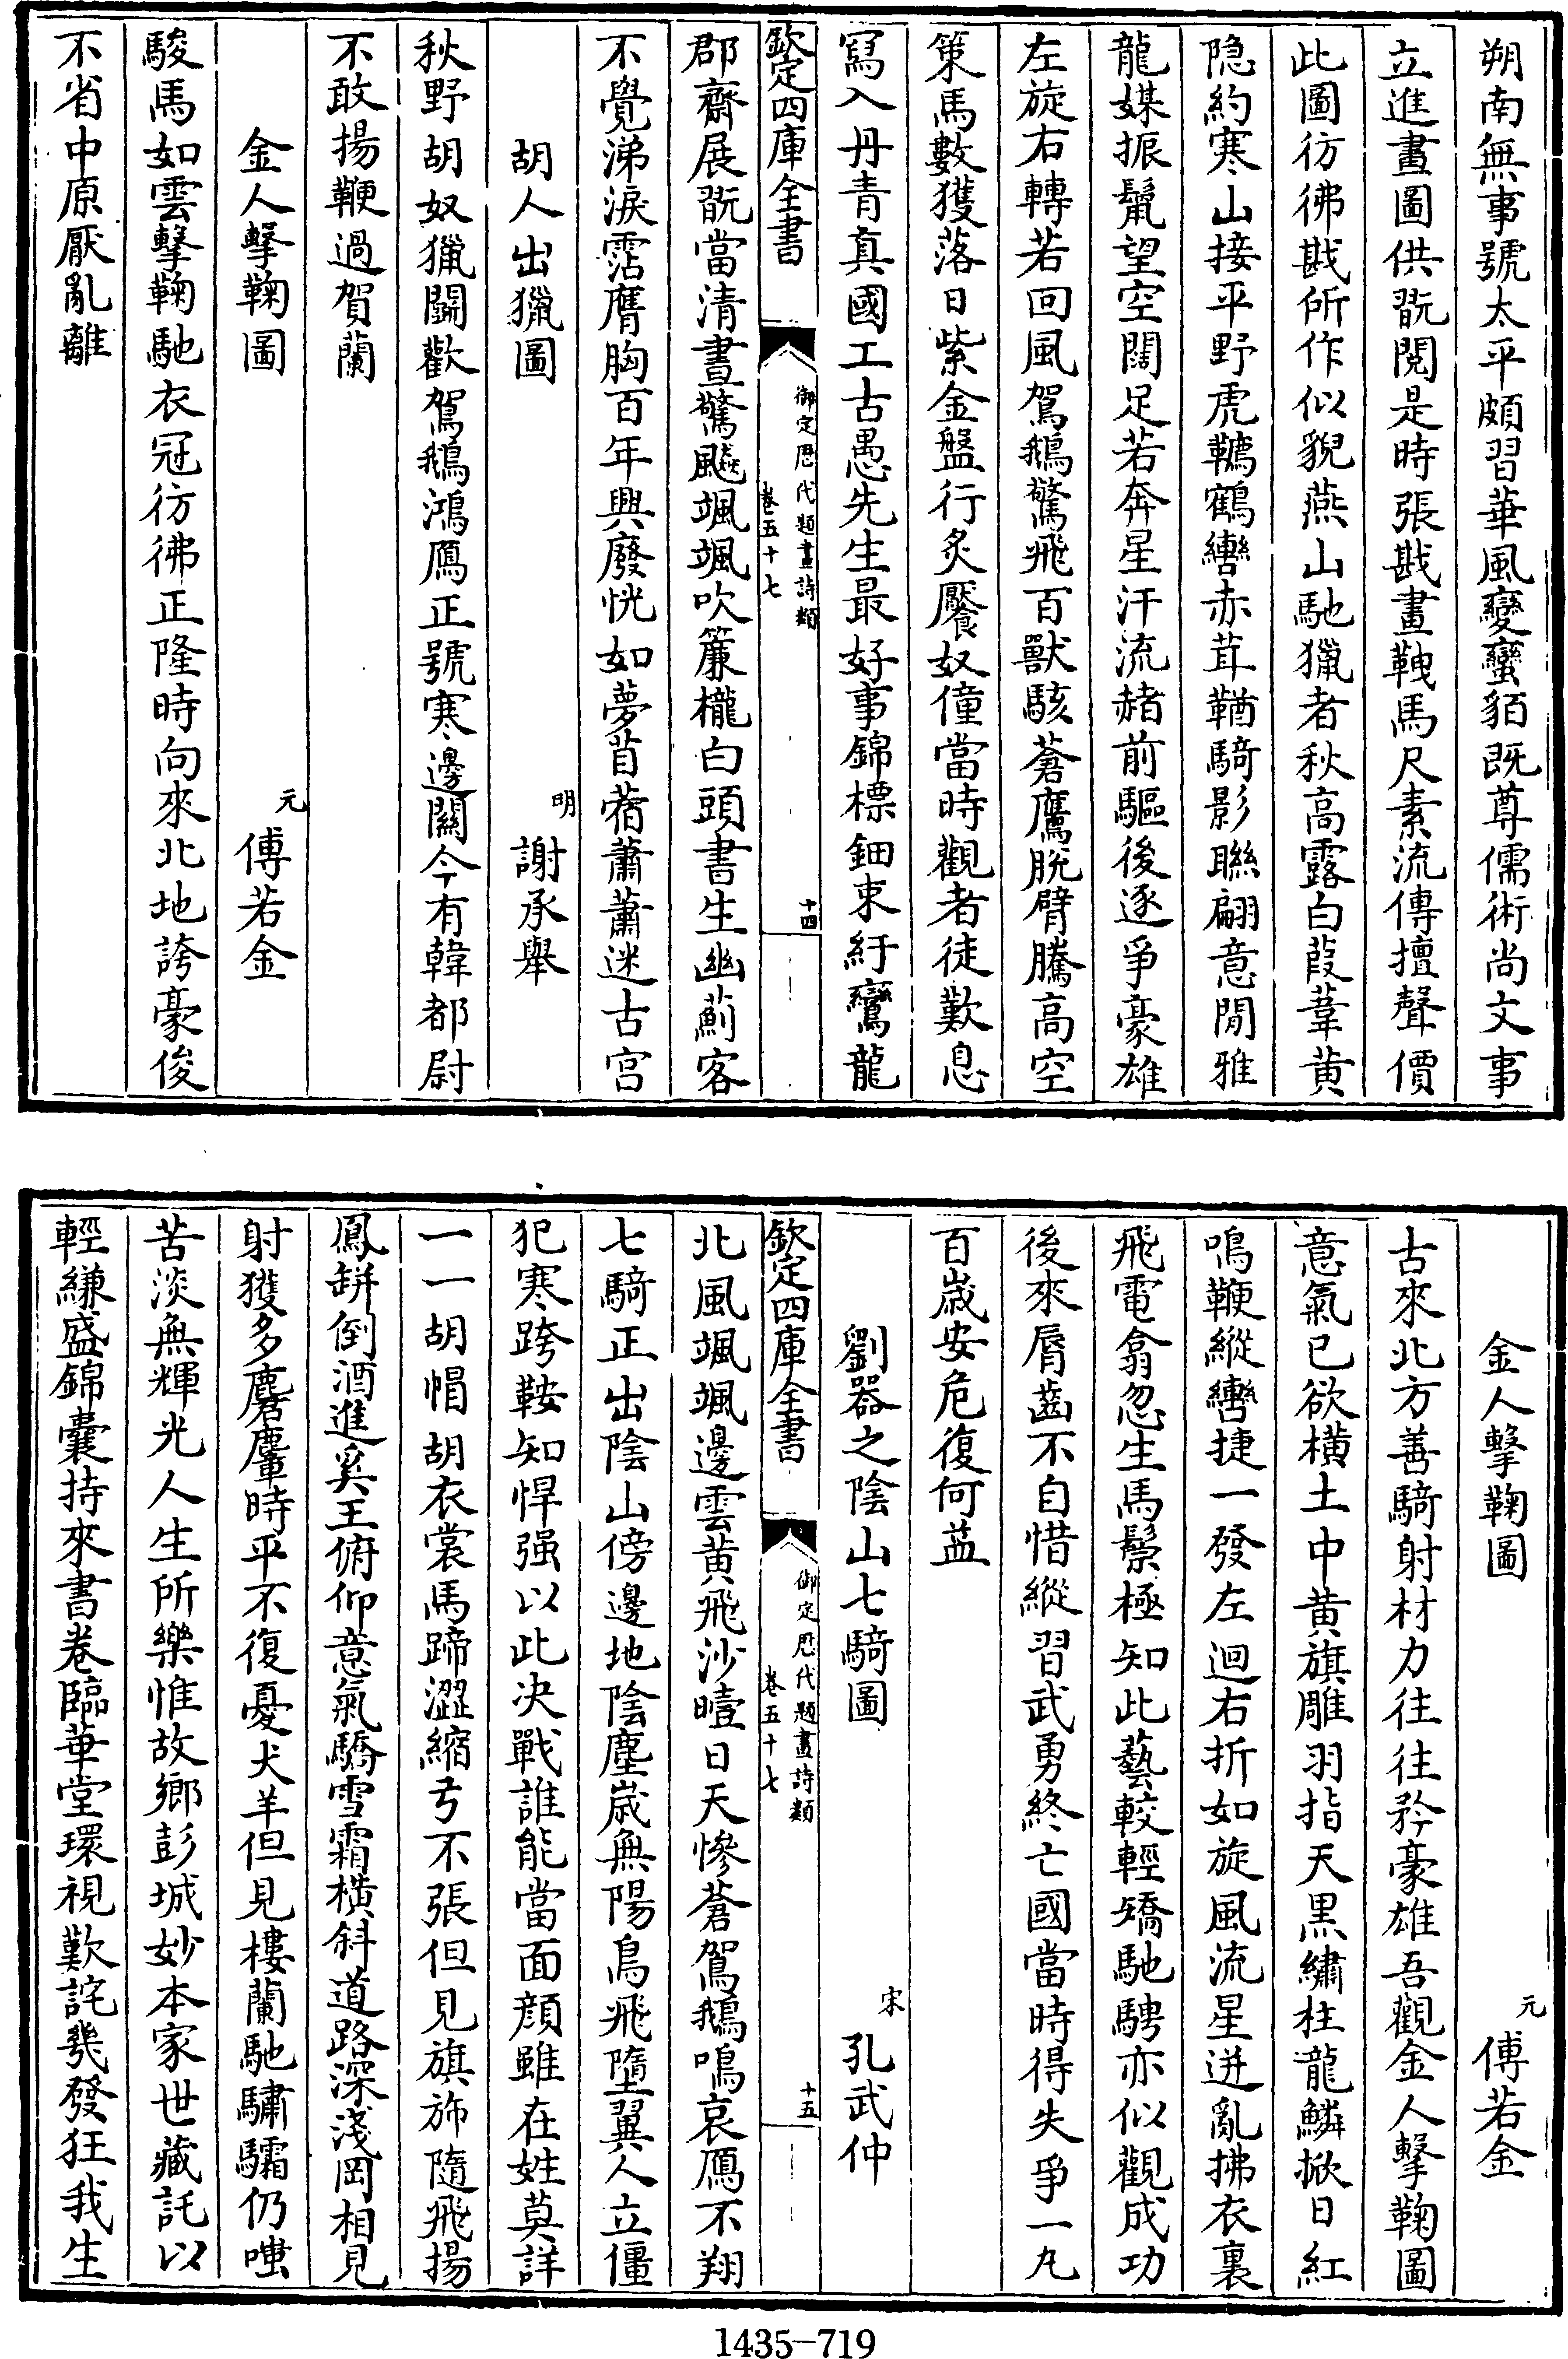 朔南無事號太平頗習華風變蠻貊既尊儒術尚文事
立進畫圖供翫閱是時張戡畫鞍馬尺素流傳擅聲價
此圖彷彿戡所作似貌燕山馳獵者秋高露白葭葦黄
隐約寒山接平野虎韉鶴轡赤茸鞧騎影聯翩意閒雅
龍媒振鬣望空闊足若奔星汗流赭前驅後逐爭豪雄
左旋右轉若回風駕鵝驚飛百獸駭蒼鷹脫臂騰高空
策馬數獲落日紫金盤行炙饜奴僮當時觀者徒歎息
寫入丹青真國工古愚先生最好事錦標鈿束紆鸞龍
欽定四庫全書
御定歴代題畫詩類
卷五十七
十四
郡齋展翫當清晝驚飈颯颯吹簾櫳白頭書生幽薊客
不覺涕淚霑膺胸百年興廢恍如夢苜蓿蕭蕭迷古宫
胡人出獵圖
明
謝承舉
秋野胡奴獵闘歡鴐鵝鴻鴈正號寒邊關今有韓都尉
不敢揚鞭過賀蘭
金人擊鞠圖
元
傅若金
駿馬如雲擊鞠馳衣冠彷彿正隆時向來北地誇豪俊
不省中原厭亂離
金人擊鞠圖
元
傅若金
古來北方善騎射材力往往矜豪雄吾觀金人擊鞠圖
意氣已欲横土中黄旗雕羽指天黒繡柱龍鱗掀日紅
鳴鞭縱轡捷一發左迴右折如旋風流星迸亂拂衣裏
飛電翕忽生馬鬃極知此藝較輕矯馳騁亦似觀成功
後來脣齒不自惜縱習武勇終亡國當時得失爭一丸
百嵗安危復何益
劉器之陰山七騎圖
宋
孔武仲
欽定四庫全書
御定歴代題畫詩類
卷五十七
十五
北風颯颯邊雲黄飛沙曀日天慘蒼鴐鵝鳴哀鴈不翔
七騎正出陰山傍邊地陰塵嵗無陽鳥飛墮翼人立僵
犯寒跨鞍知悍强以此决戰誰能當面顔雖在姓莫詳
一一胡帽胡衣裳馬蹄澀縮弓不張但見旗斾隨飛揚
鳳缾倒酒進奚王俯仰意氣驕雪霜横斜道路深淺岡相見
射獲多麏麞時平不復憂犬羊但見樓蘭馳驌驦仍嗤
苦淡無輝光人生所樂惟故鄉彭城妙本家世藏託以
輕縑盛錦囊持來書卷臨華堂環視歎詫幾發狂我生
1435-719